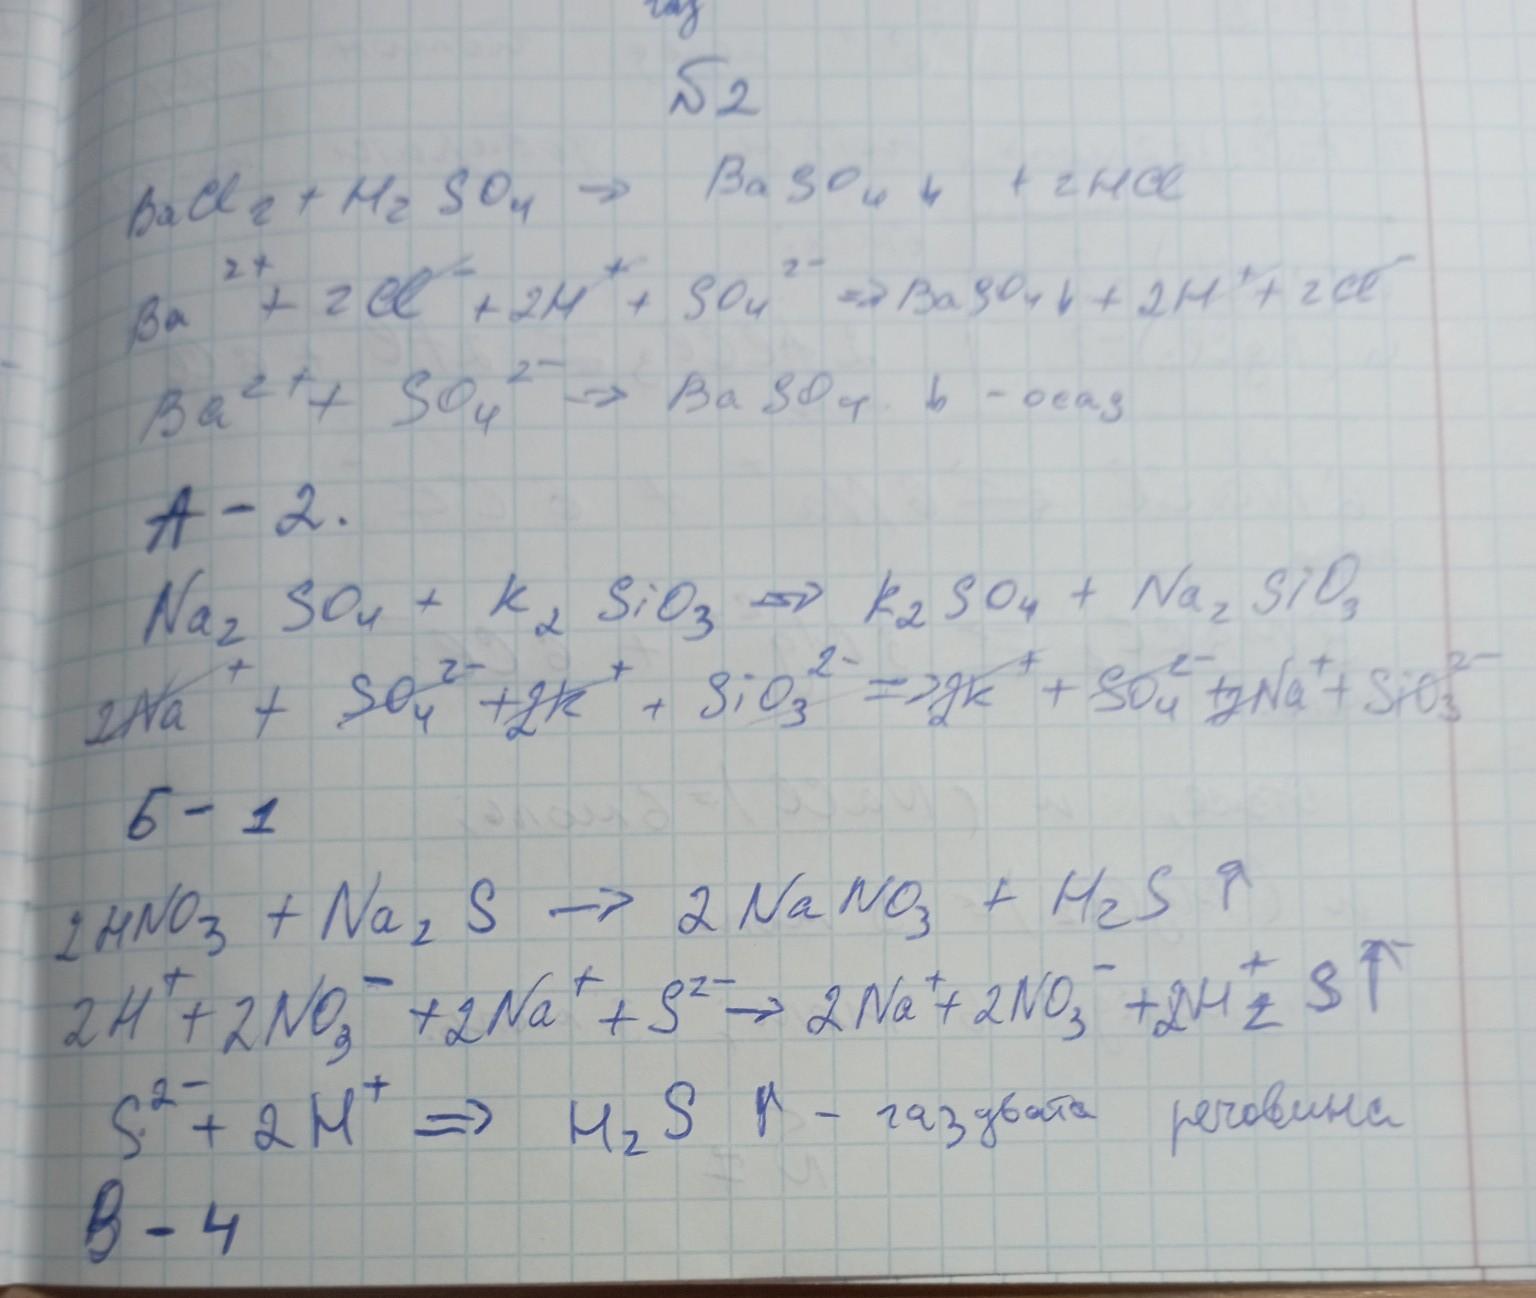 газ
№2
BaCl₂ + H₂SO₄ → BaSO₄ ↓ + 2HCl
Ba²⁺ + 2Cl⁻ + 2H⁺ + SO₄²⁻ => BaSO₄↓ + 2H⁺ + 2Cl⁻
Ba²⁺ + SO₄²⁻ → BaSO₄ ↓ - осад
А - 2.
Na₂SO₄ + K₂SiO₃ => K₂SO₄ + Na₂SiO₃
2Na⁺ + SO₄²⁻ + 2K⁺ + SiO₃²⁻ => 2K⁺ + SO₄²⁻ + 2Na⁺ + SiO₃²⁻
Б - 1
2HNO₃ + Na₂S → 2NaNO₃ + H₂S ↑
2H⁺ + 2NO₃⁻ + 2Na⁺ + S²⁻ → 2Na⁺ + 2NO₃⁻ + 2H₂⁺S↑⁻
S²⁻ + 2H⁺ => H₂S ↑ - газдвата речовина
В - 4